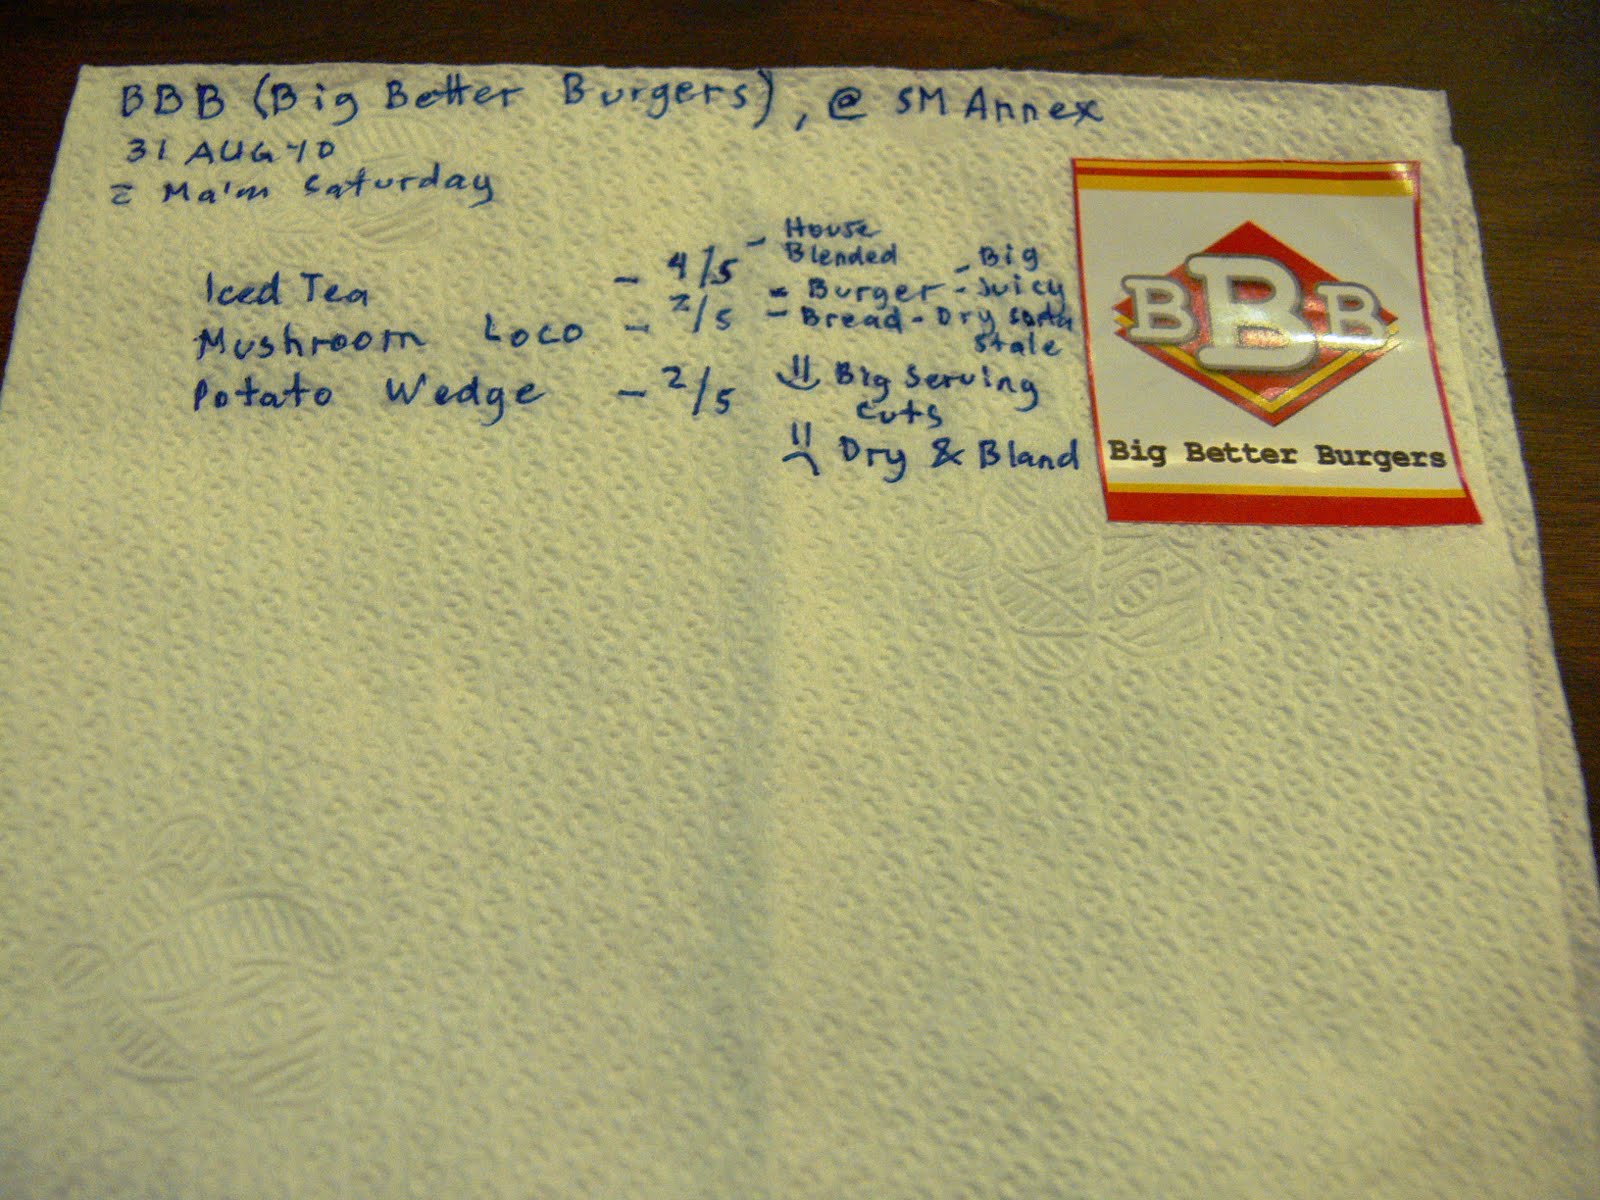 BBB (Big Better Burgers), @ SM Annex
31 AUG 10
Ma'm Saturday
Iced Tea - 4/5 - House Blended
Mushroom Loco - 2/5 - Burger - Big - Juicy
- Bread - Dry sorta stale
Potato Wedge - 2/5 Big Serving cuts
Dry & Bland
BBB
Big Better Burgers